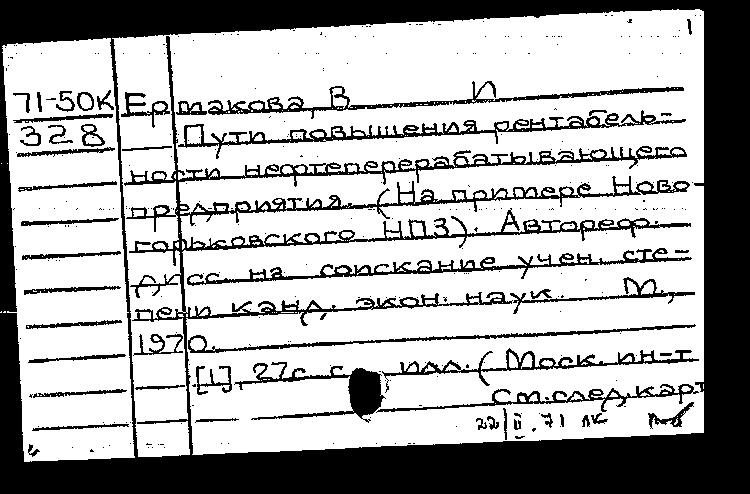 1
71-50К Ермакова, В И
328 Пути повышения рентабель-
ности нефтеперерабатывающего
предприятия. (На примере Ново-
горьковского НПЗ). Автореф.
дисс. на соискание учен. сте-
пени канд. экон. наук. М.,
1970.
[1], 27с. с илл. (Моск. ин-т
См. след. карт
22/II.71